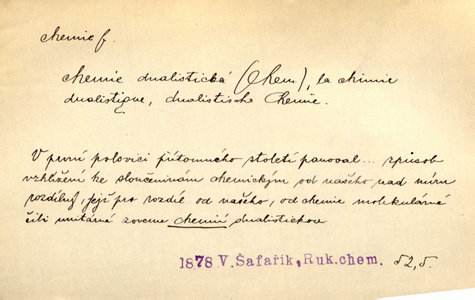 chemie f.
chemie dualistická (Chem), la chimie
dualistique, dualistische Chemie.
V první polovici přítomného století panoval... způsob
vzhlížení ke sloučeninám chemickým od našeho nad míru
rozdílný, jejž pro rozdíl od našeho, od chemie molekulárné
čili unitárné zoveme chemií dualistickou
1878 V. Šafařík, Ruk. chem. 52,5.